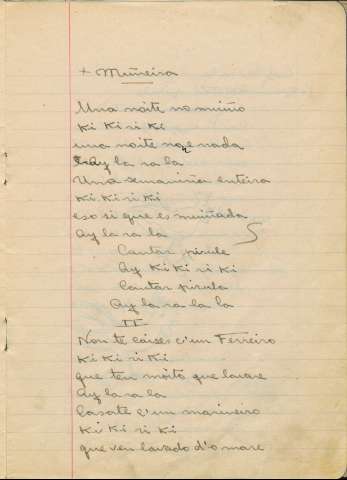 + Muñeira
Una noite no muiño
Ki Ki ri Ki
una noite non e nada
Ay la ra la
Una semaniña enteira
Ki Ki ri Ki
eso si que es muiñada
Ay la ra la
Cantar pirule
Ay Ki Ki ri Ki
Cantar pirula
Ay la ra la la
II
Non te cáises c'un Ferreiro
Ki Ki ri Ki
que ten moito que lavare
Ay la ra la
Casate c'un marineiro
Ki Ki ri Ki
que ven lavado d'o mare